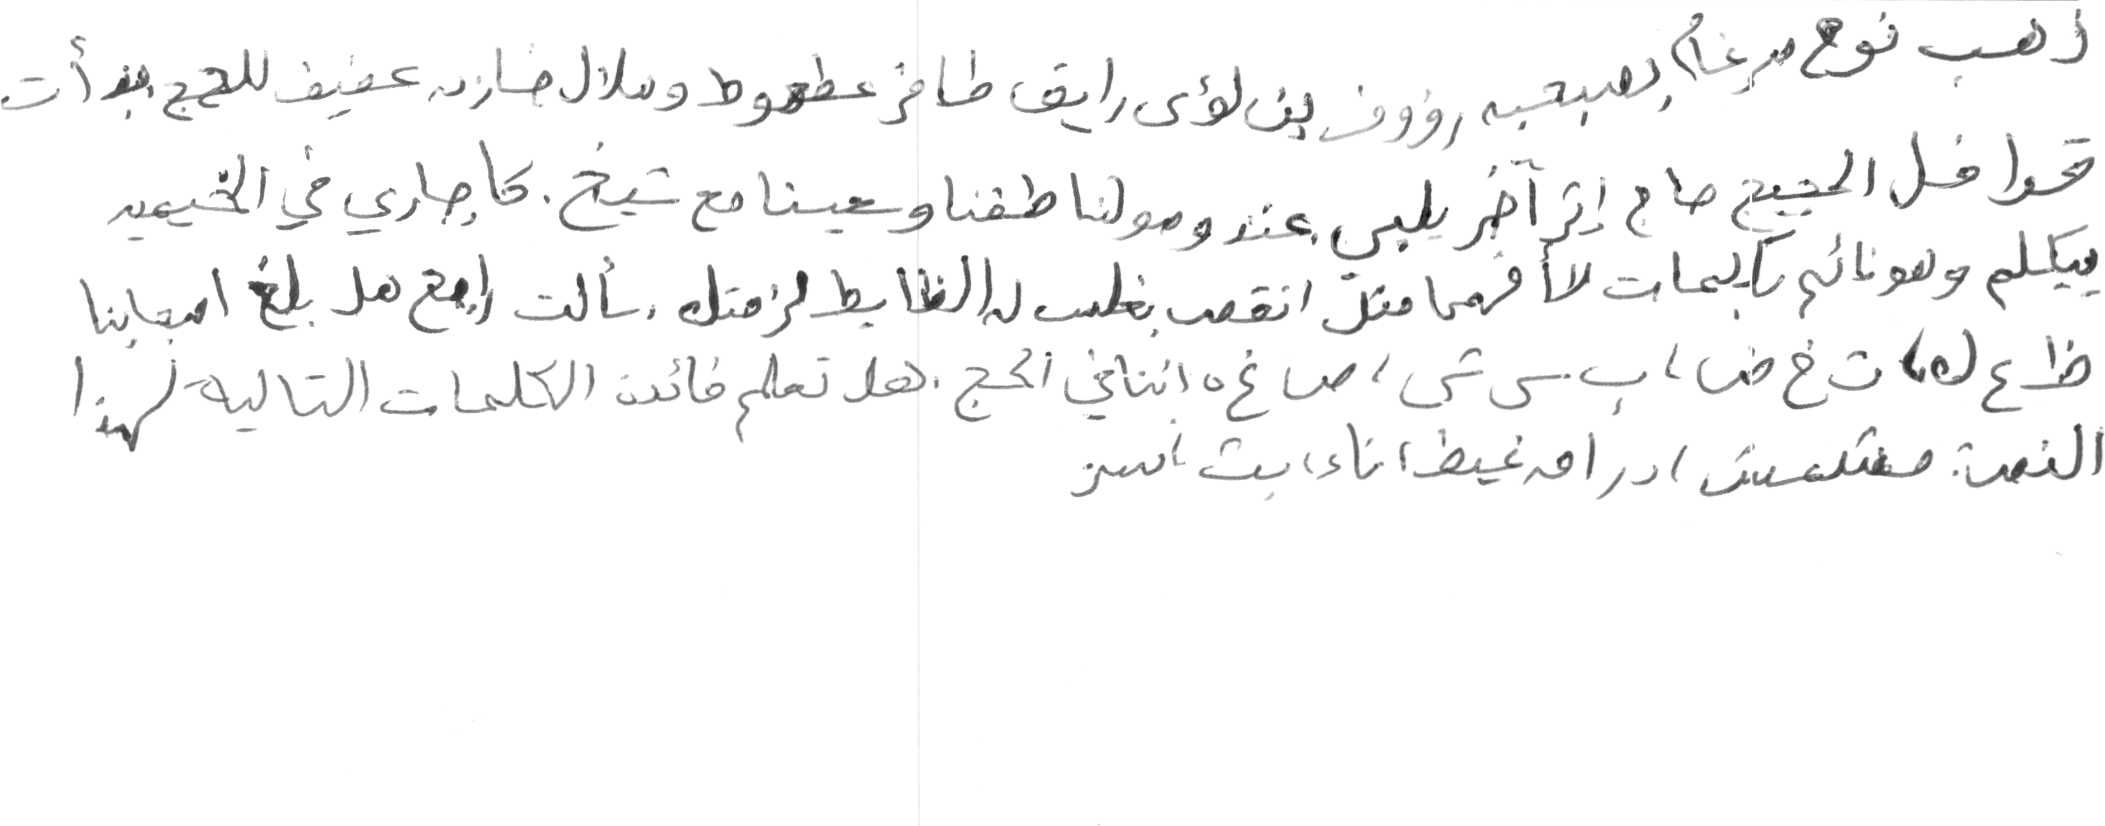 ذهب نوح ضرغام بصحبة رؤوف بن لؤى رايق ظافر عطعوط وهلال خازن عفيف للحج بدأت
قوافل الحجيج حاج إثر آخر يلبى عند وصولنا طفنا وسعينا مع شيخ. كا جاري في الخيمة
ييكلم وهو نائم بكلمات لا أفهمها مثل انقصب بغلب له الظابط لزمتك. سألت رابح هل بلغ اصحابنا
ظ ع ل ه، ث خ ض، ب س ش، ص غ ه اننا في الحج. هل تعلم فائدة الكلمات التالية لهذا
النص: مشمش، دراق غيظ، ناء، بث،